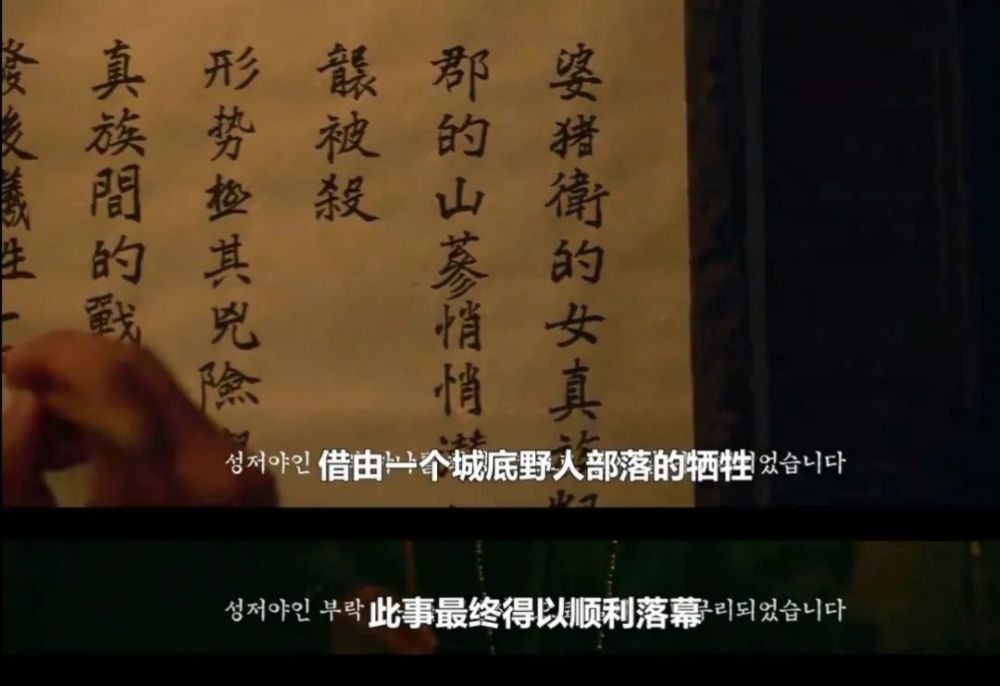 婆猪衛的女真族
郡的山蔘悄悄潛
襲被殺
形势極其兇險
真族間的戰
發後犧牲一
성저야인 되었습니다
借由一个城底野人部落的牺牲
성저야인 부락 무리되었습니다
此事最终得以顺利落幕